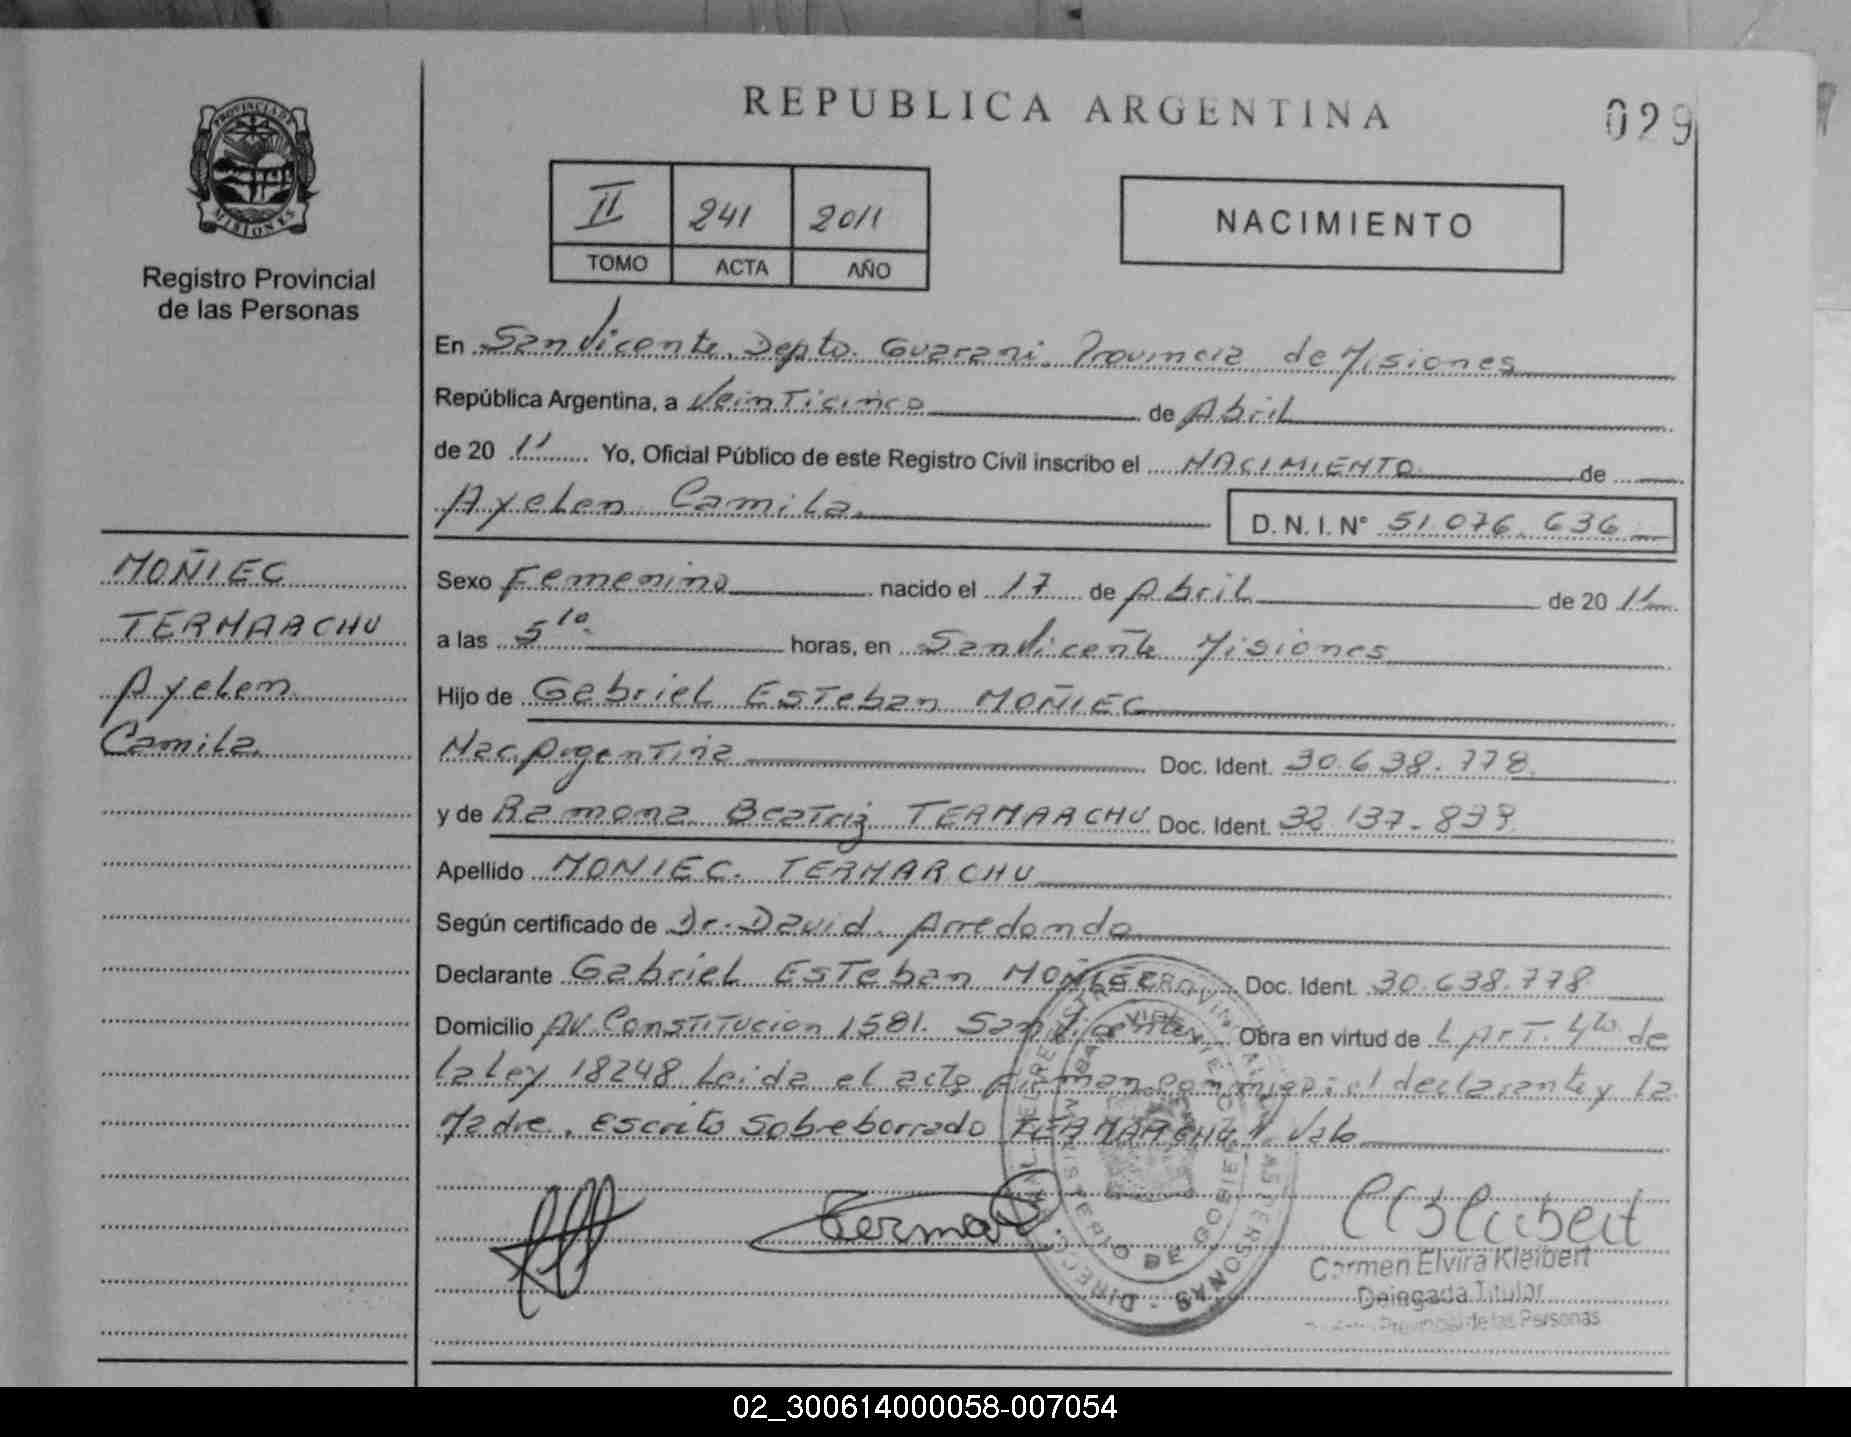 REPUBLICA ARGENTINA
029
PROVINCIA DE
MISIONES
Registro Provincial
de las Personas
II 241 2011
TOMO ACTA AÑO
NACIMIENTO
En San Vicente, Depto. Guarani, Provincia de Misiones
República Argentina, a Veinticinco de Abril
de 20 11 Yo, Oficial Público de este Registro Civil inscribo el NACIMIENTO de
Ayelen Camila
D. N. I. N° 51.076.636
MOÑIEC
TERMARCHU
Ayelen
Camila
Sexo Femenino nacido el 17 de Abril de 20 11
a las 5 10 horas, en San Vicente Misiones
Hijo de Gabriel Esteban MOÑIEC
Nac. Argentina Doc. Ident. 30.638.778
y de Ramona Beatriz TERMARCHU Doc. Ident. 32.137.899
Apellido MOÑIEC. TERMARCHU
Según certificado de Dr. David Arredondo
Declarante Gabriel Esteban MOÑIEC Doc. Ident. 30.638.778
Domicilio AV. Constitucion 1581. San Vicente Obra en virtud de L ArT. 4to de
la Ley 18248 Leida el acta firman conmigo: el declarante y la
Madre. Escrito sobreborrado "TERMARCHU" Vale
DIRECC. GRAL. REGISTRO PROVINCIAL DE LAS PERSONAS
MINISTERIO DE GOBIERNO
SAN VICENTE
Carmen Elvira Kleibert
Delegada Titular
Provincial de las Personas
02_300614000058-007054